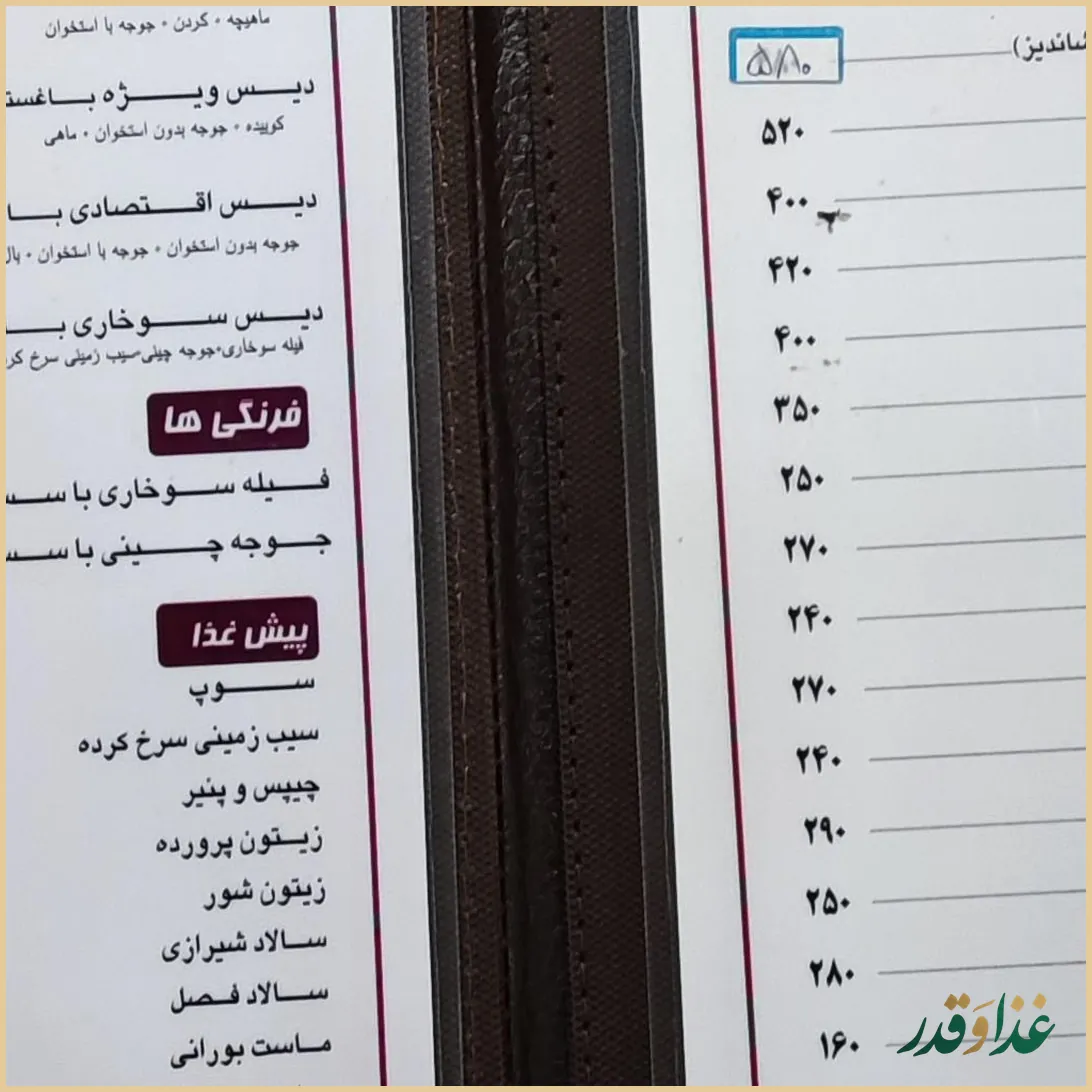 شاندیز)
۵۸۰
۵۲۰
۴۰۰
۴۲۰
۴۰۰
۳۵۰
۲۵۰
۲۷۰
۲۴۰
۲۷۰
۲۴۰
۲۹۰
۲۵۰
۲۸۰
۱۶۰
ماهیچه • گردن • جوجه با استخوان
دیس ویژه
کوبیده • جوجه بدون استخوان • ماهی
دیس اقتصادی
جوجه بدون استخوان • جوجه با استخوان •
دیس سوخاری
فیله سوخاری•جوجه چینی•سیب زمینی سرخ
فرنگی ها
فیله سوخاری با
جوجه چینی با
پیش غذا
سوپ
سیب زمینی سرخ کرده
چیپس و پنیر
زیتون پرورده
زیتون شور
سالاد شیرازی
سالاد فصل
ماست بورانی
غذا و قدر